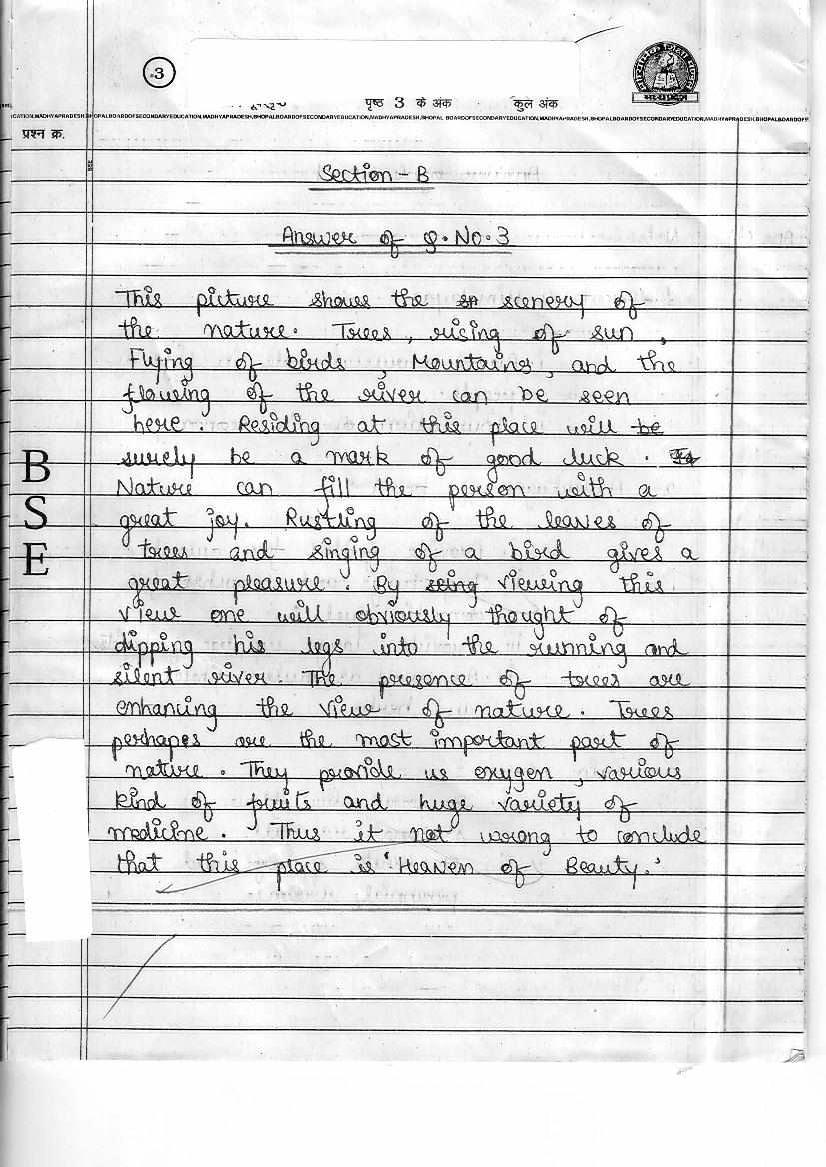 3
पृष्ठ 3 के अंक कुल अंक
माध्यमिक शिक्षा मण्डल
मध्यप्रदेश
CATION,MADHYAPRADESH,BHOPALBOARDOFSECONDARYEDUCATION,MADHYAPRADESH,BHOPALBOARDOFSECONDARYEDUCATION,MADHYAPRADESH,BHOPAL BOARDOFSECONDARYEDUCATION,MADHYAPRADESH,BHOPALBOARDOF
प्रश्न क्र.
Section - B
Answer of Q. No. 3
This picture shows the scenery of
the nature. Trees, rising of sun,
Flying of birds, Mountains, and the
flowing of the river can be seen
here. Residing at this place will be
surely be a mark of good luck.
Nature can fill the person with a
great joy. Rustling of the leaves of
trees and singing of a bird gives a
great pleasure. By seing viewing this
view one will obviously thought of
dipping his legs into the running and
silent river. The presence of trees are
enhancing the view of nature. Trees
perhapes are the most important part of
nature. They provide us oxygen, various
kind of fruits and huge variety of
medicine. Thus it not wrong to conclude
that this place is 'Heaven of Beauty.'
B
S
E